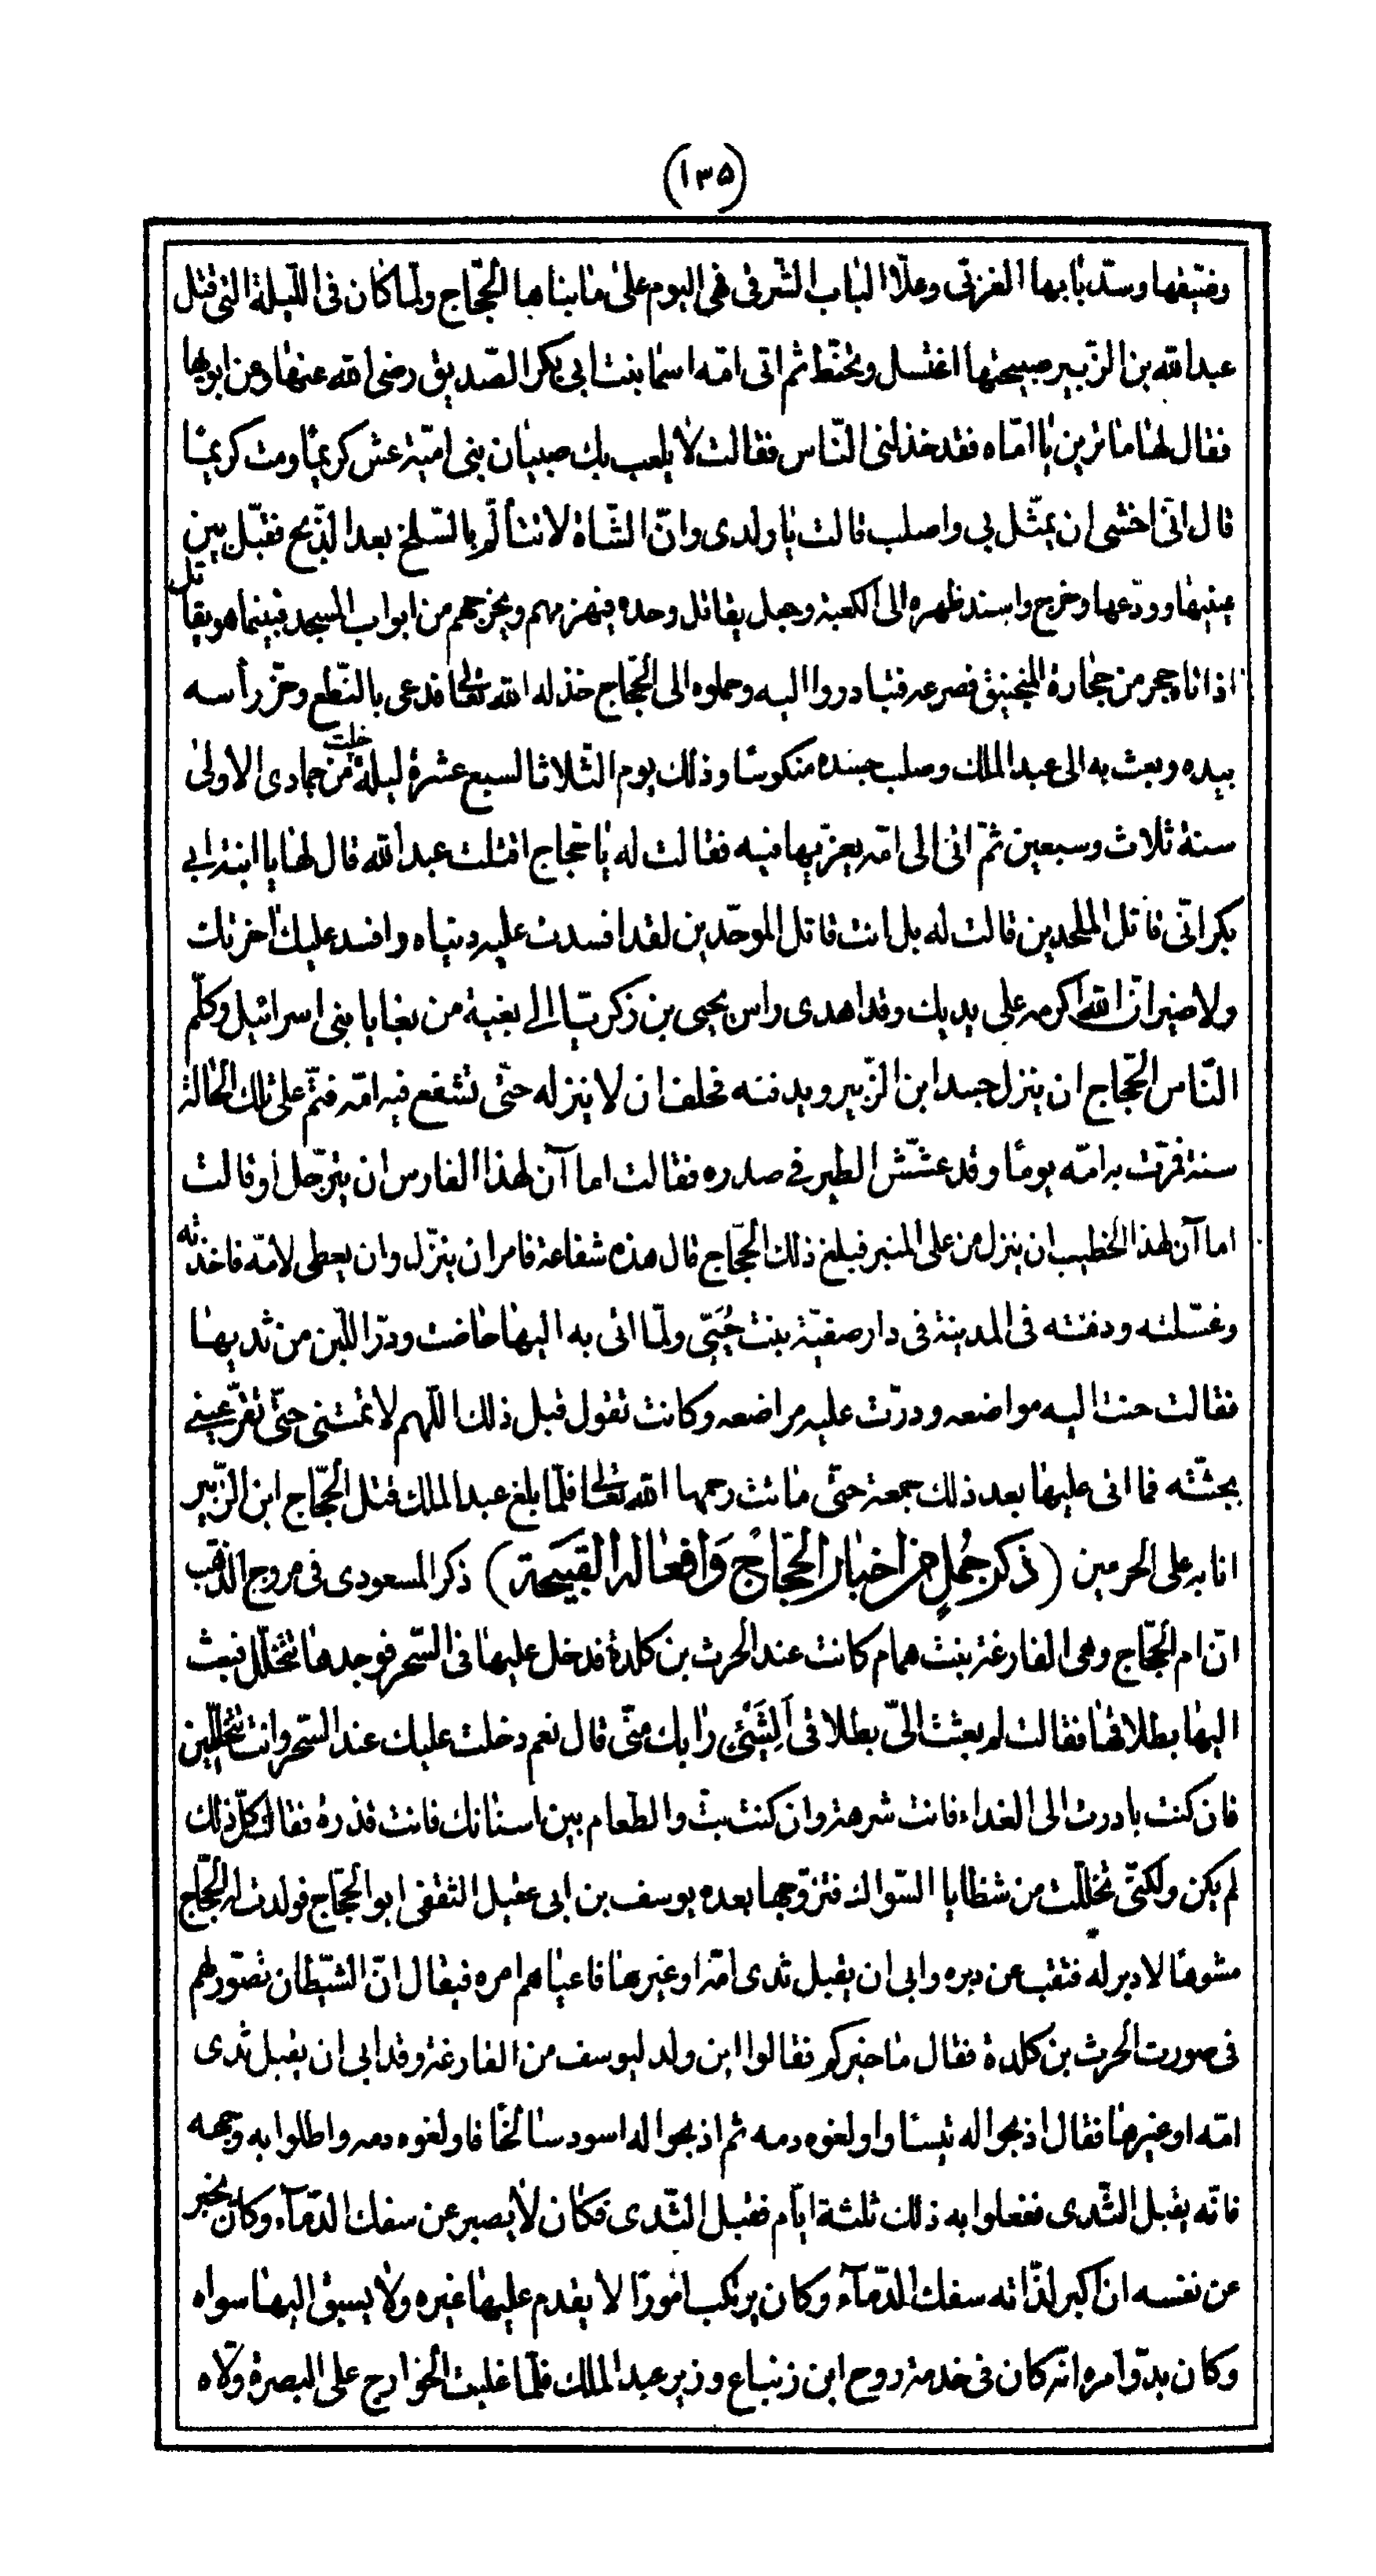 (۱۳۵)
وضيقها وسدّ بابها الغربّى وعلّا الباب الشّرقى فهى اليوم على ما بناها الحّجاج ولمّا كان فى اللّيلة التى قتل
عبد الله بن الزّبير صبيحتها اغتسل وتحنّط ثم اتى امّه اسما بنت ابى بكر الصّديق رضى الله عنها وعن ابويها
فقال لها ما ترين يا امّاه فقد خذلنى النّاس فقالت لا يلعب بك صبيان بنى اميّة عش كريمًا ومت كريمًا
قال انّى اخشى ان يمثّل بى واصلب قالت يا ولدى وانّ الشّاة لا تتألّم بالسّلخ بعد الذّبح فقبّل بين
عينيها وودّعها وخرج واسند ظهره الى الكعبة وجعل يقاتل وحده فيهزمهم ويخرجهم من ابواب المسجد فبينما هو يقاتل
اذ اتاه حجر من حجارة المنجنيق فصرعه فتبادروا اليه وحملوه الى الحّجاج خذله الله تعالى فدعى بالنّطع وحزّ رأسه
بيده وبعث به الى عبد الملك وصلب جسده منكوسًا وذلك يوم الثّلاثا لسبع عشرة ليلة خلت من جمادى الاولى
سنة ثلاث وسبعين ثمّ اتى الى امّه يعزّيها فيه فقالت له يا حّجاج اقتلت عبد الله قال لها يا ابنة ابى
بكر انّى قاتل الملحدين قالت له بل انت قاتل الموحّدين لقد افسدت عليه دنياه وافسد عليك اخرتك
ولا ضير انّ الله اكرمه على يديك وقد اهدى راس يحيى بن زكريّا الى بغية من بغايا بنى اسرائيل وكلّم
النّاس الحّجاج ان ينزل جسد ابن الزّبير ويدفنه فحلف ان لا ينزله حتّى تشفع فيه امّه فتمّ على تلك الحالة
سنة فمرّت به امّه يومًا وقد عشّش الطير فى صدره فقالت اما آن لهذا الفارس ان يترجّل او قالت
اما آن لهذا الخطيب ان ينزل من على المنبر فبلغ ذلك الحّجاج قال هذه شفاعة فامر ان ينزّل وان يعطى لامّه فاخذته
وغسّلته ودفنته فى المدينة فى دار صفيّة بنت حُيَيّ ولمّا اتى به اليها حاضت ودرّ اللّبن من ثديها
فقالت حنت اليه مواضعه ودرّت عليه مراضعه وكانت تقول قبل ذلك اللّهم لا تمتنى حتّى تقرّ عينى
بجثّته فما اتى عليها بعد ذلك جمعة حتّى ماتت رحمها الله تعالى فلمّا بلغ عبد الملك قتل الحّجاج ابن الزّبير
انابه على الحرمين (ذكر جُملٍ من اخبار الحّجاج وَافعاله القَبيحة) ذكر المسعودى فى مروج الذّهب
انّ ام الحّجاج وهى الفارغة بنت همام كانت عند الحرث بن كلدة فدخل عليها فى السّحر فوجدها تتخلّل فبعث
اليها بطلاقها فقالت لم بعثت الىّ بطلاقى اَلِشَيْءٍ رابك منّى قال نعم دخلت عليك عند السّحر وانت تتخلّلين
فان كنت بادرت الى الغداء فانت شرهة وان كنت بتّ والطّعام بين اسنانك فانت قذرة فقالت كلّ ذلك
لم يكن ولكنّى تخللت من شظايا السّواك فتزوّجها بعده يوسف بن ابى عقيل الثقفى ابو الحّجاج فولدت له الحّجاج
مشوهًا لا دبر له فثقب عن دبره وابى ان يقبل ثدى امّه او غيرها فاعياهم امره فيقال انّ الشّيطان تصوّر لهم
فى صورت الحرث بن كلدة فقال ما خبركم فقالوا ابن ولد ليوسف من الفارغة وقد ابى ان يقبل ثدى
امّه او غيرها فقال اذبحوا له تيسًا واولغوه دمه ثم اذبحوا له اسود سالخًا فاولغوه دمه واطلوا به وجهه
فانّه يقبل الثّدى ففعلوا به ذلك ثلثة ايّام فقبل الثّدى فكان لا يصبر عن سفك الدّمآء وكان يخبر
عن نفسه انّ اكبر لذّاته سفك الدّمآء وكان يرتكب امورًا لا يقدم عليها غيره ولا يسبق اليها سواه
وكان بدوّ امره انّه كان فى خدمة روح ابن زنباع وزير عبد الملك فلمّا غلبت الخوارج على البصرة ولّاه